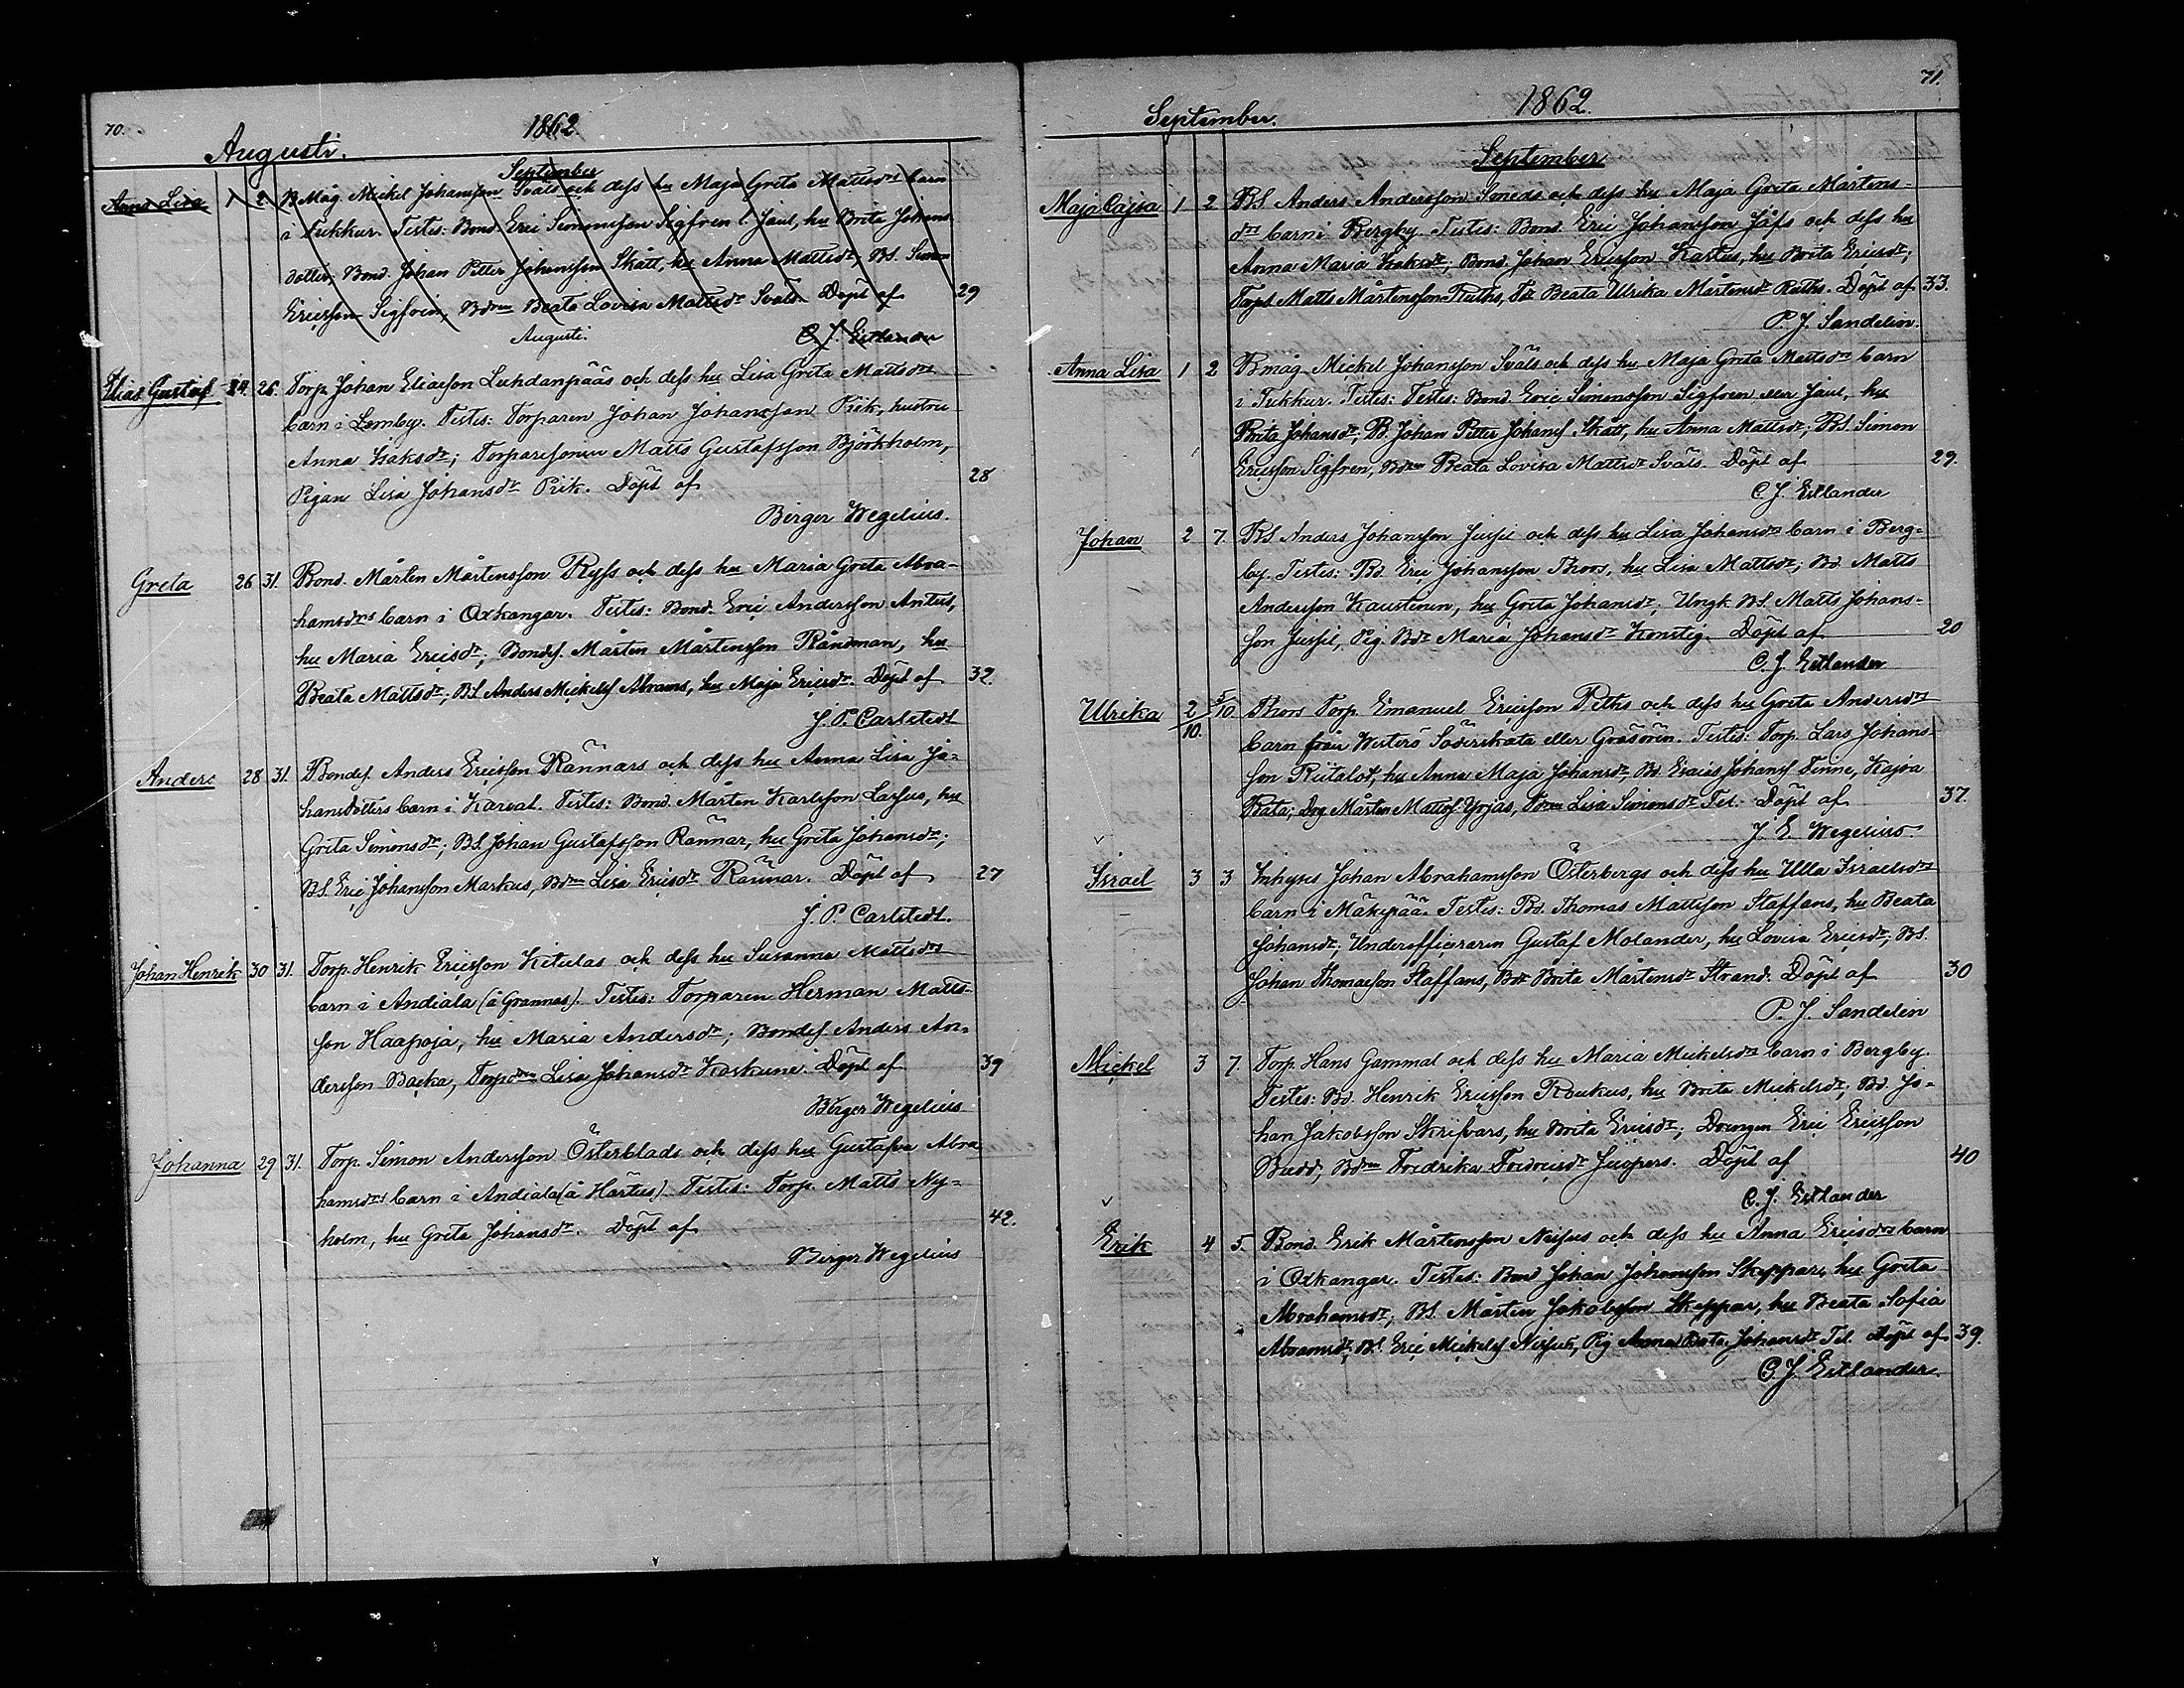 70.
1862.
Augusti.
September
Anna Lisa 1 2 B.Måg. Mickel Johansson Sväls och dess hu Maja Greta Mattsdrs barn
i Tukkur. Testes: Bond. Eric Simonsson Sigfren l. Jaul, hu Brita Johans
dotter, Bond. Johan Petter Johansson Skått, hu Anna Mattsdr, BS. Simon
Ericsson Sigfren, Bdrn Beata Lovisa Mattsdr Sväls. Döpt af 29
C. J. Estlander
Augusti.
Elias Gustaf 24. 26. Torp. Johan Eliasson Luhdanpääs och dess hu Lisa Greta Mattsdrs
barn i Lomby. Testes: Torparen Johan Johansson Prik, hustru
Anna Isaksdr; Torparesonen Matts Gustafsson Björkholm,
Pigan Lisa Johansdr Prik. Döpt af 28
Birger Wegelius.
Greta 26 31. Bond. Mårten Mårtensson Ryss och dess hu Maria Greta Abra-
hamsdrs barn i Oxkangar. Testes: Bond. Eric Andersson Antus,
hu Maria Ericsdr; Bondes. Mårten Mårtensson Råndman, hu
Beata Mattsdr; BS Anders Mickelss Abrams, hu Maja Ericsdr. Döpt af 32.
J. P. Carlstedt
Anders 28 31. Bondes. Anders Ericsson Rännars och dess hu Anna Lisa Jo-
hansdotters barn i Karvat. Testes: Bond. Mårten Karlsson Larsus, hu
Greta Simonsdr; BS. Johan Gustafsson Rännar, hu Greta Johansdr;
BS. Eric Johansson Markus, Bdrn Lisa Ericsdr Rännar. Döpt af 27
J. P. Carlstedt.
Johan Henrik 30 31. Torp. Henrik Ericsson Kitulas och dess hu Susanna Mattsdrs
barn i Andiala (å Grannas). Testes: Torparen Herman Matts-
son Haapoja, hu Maria Andersdr; Bondes. Anders An-
dersson Backa, Torpdrn Lisa Johansdr Koskune. Döpt af 39
Birger Wegelius
Johanna 29 31. Torp. Simon Andersson Österblads och dess hu Gustafva Abra
hamsdrs barn i Andiala (å Härtus). Testes: Torp. Matts Ny-
holm, hu Greta Johansdr. Döpt af 42.
Birger Wegelius
71.
1862.
September.
September
Maja Cajsa 1 2 BS. Anders Andersson Smeds och dess hu Maja Greta Mårtens-
drs barn i Bergby. Testes: Bond. Eric Johansson Jåfs och dess hu
Anna Maria Isaksdr; Bond. Johan Ericsson Kartus, hu Brita Ericsdr;
Torps Matts Mårtensson Ruths, Tdr Beata Ulrika Mårtensdr Ruths. Döpt af 33.
P. J. Sandelin.
Anna Lisa 1 2 Bmåg. Mickel Johansson Sväls och dess hu Maja Greta Mattsdrs barn
i Tukkur. Testes: Testes: Bond. Eric Simonsson Sigfren eller Jaul, hu
Brita Johansdr; B. Johan Petter Johanss Skått, hu Anna Mattsdr; BS. Simon
Ericsson Sigfren, Bdrn Beata Lovisa Mattsdr Sväls. Döpt af 29.
C. J. Estlander
Johan 2 7. BS Anders Johansson Jussil och dess hu Lisa Johansdrs barn i Berg-
by. Testes: Bd. Eric Johansson Thors, hu Lisa Mattsdr; Bd. Matts
Andersson Kaustinen, hu Greta Johansdr; Ungk. BS. Matts Johans-
son Jussil, Pig. Bdr Maria Johansdr Konstig. Döpt af 20
C. J. Estlander
Ulrika 2/10. 5/10. Thors Torp. Emanuel Ericsson Peths och dess hu Greta Andersdrs
barn från Westerö Söderskata eller Gråsören. Testes: Torp. Lars Johans-
son Riitalot, hu Anna Maja Johansdr. Bd. Esaias Johanss Finne, Kajsa
Beata; Drg Mårten Mattss. Yrjas, Lisa Simonsdr Tel. Döpt af 37.
J. E. Wegelius.
Israel 3 3 Inhyses Johan Abrahamsson Österbergs och dess hu Ulla Israelsdrs
barn i Mäkipää. Testes: Bd. Thomas Mattsson Staffans, hu Beata
Johansdr; Underofficeraren Gustaf Molander, hu Lovisa Ericsdr; BS.
Johan Thomasson Staffans, Bdr Brita Mårtensdr Strand. Döpt af 30
P. J. Sandelin
Mickel 3 7. Torp. Hans Gammal och dess hu Maria Mickelsdrs barn i Bergby.
Testes: Bd. Henrik Ericsson Roukus, hu Brita Mickelsdr; Bd. Jo-
han Jakobsson Skrifvars, hu Brita Ericsdr; Drengen Eric Ericsson
Budd, Bdrn Fredrika Fredricsdr Juopers. Döpt af 40
C. J. Estlander
Erik 4 5. Bond. Erik Mårtensson Neisus och dess hu Anna Ericsdrs barn
i Oxkangar. Testes: Bond Johan Johansson Skeppar, hu Greta
Abrahamsdr, BS. Mårten Jakobsson Skeppar, hu Beata Sofia
Abramsdr, BS. Eric Mickelss Neisus, Pig Anna Brita Johansdr Tel. Döpt af 39.
C. J. Estlander.